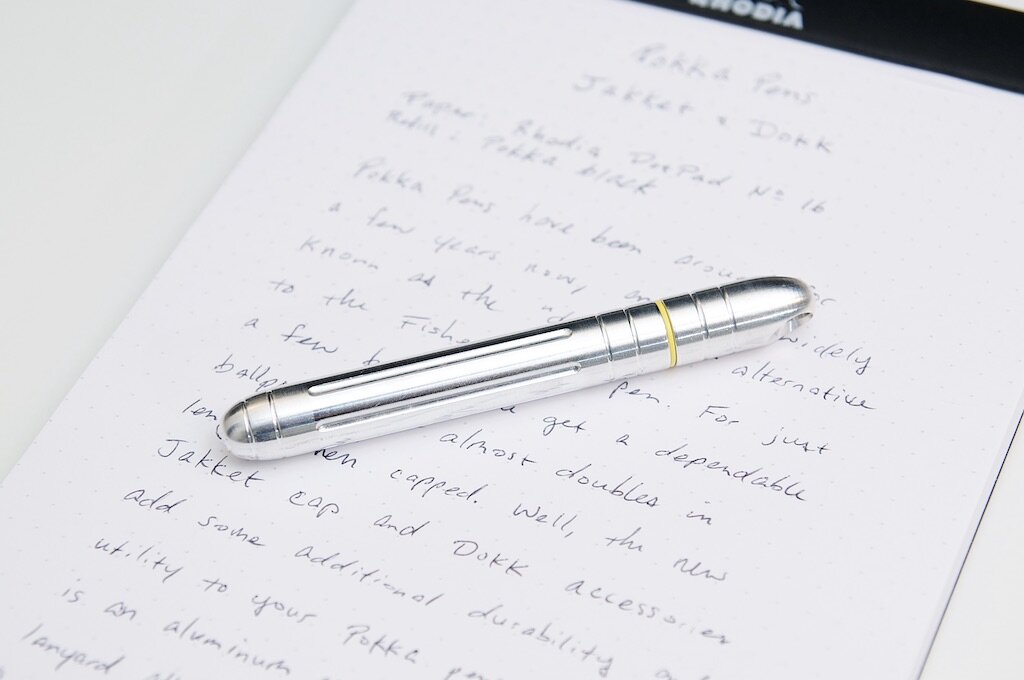 RHODIA
Pokka Pens
Jakket & Dokk
Paper: Rhodia DotPad No 16
Refill: Pokka black
Pokka Pens have been
a few years now, widely
known as the alternative
to the pen. For just
a few get a dependable
almost doubles in
when capped. Well, the new
Jakket cap and Dokk accessories
add some additional durability
utility to your Pokka
is an aluminum
lanyard